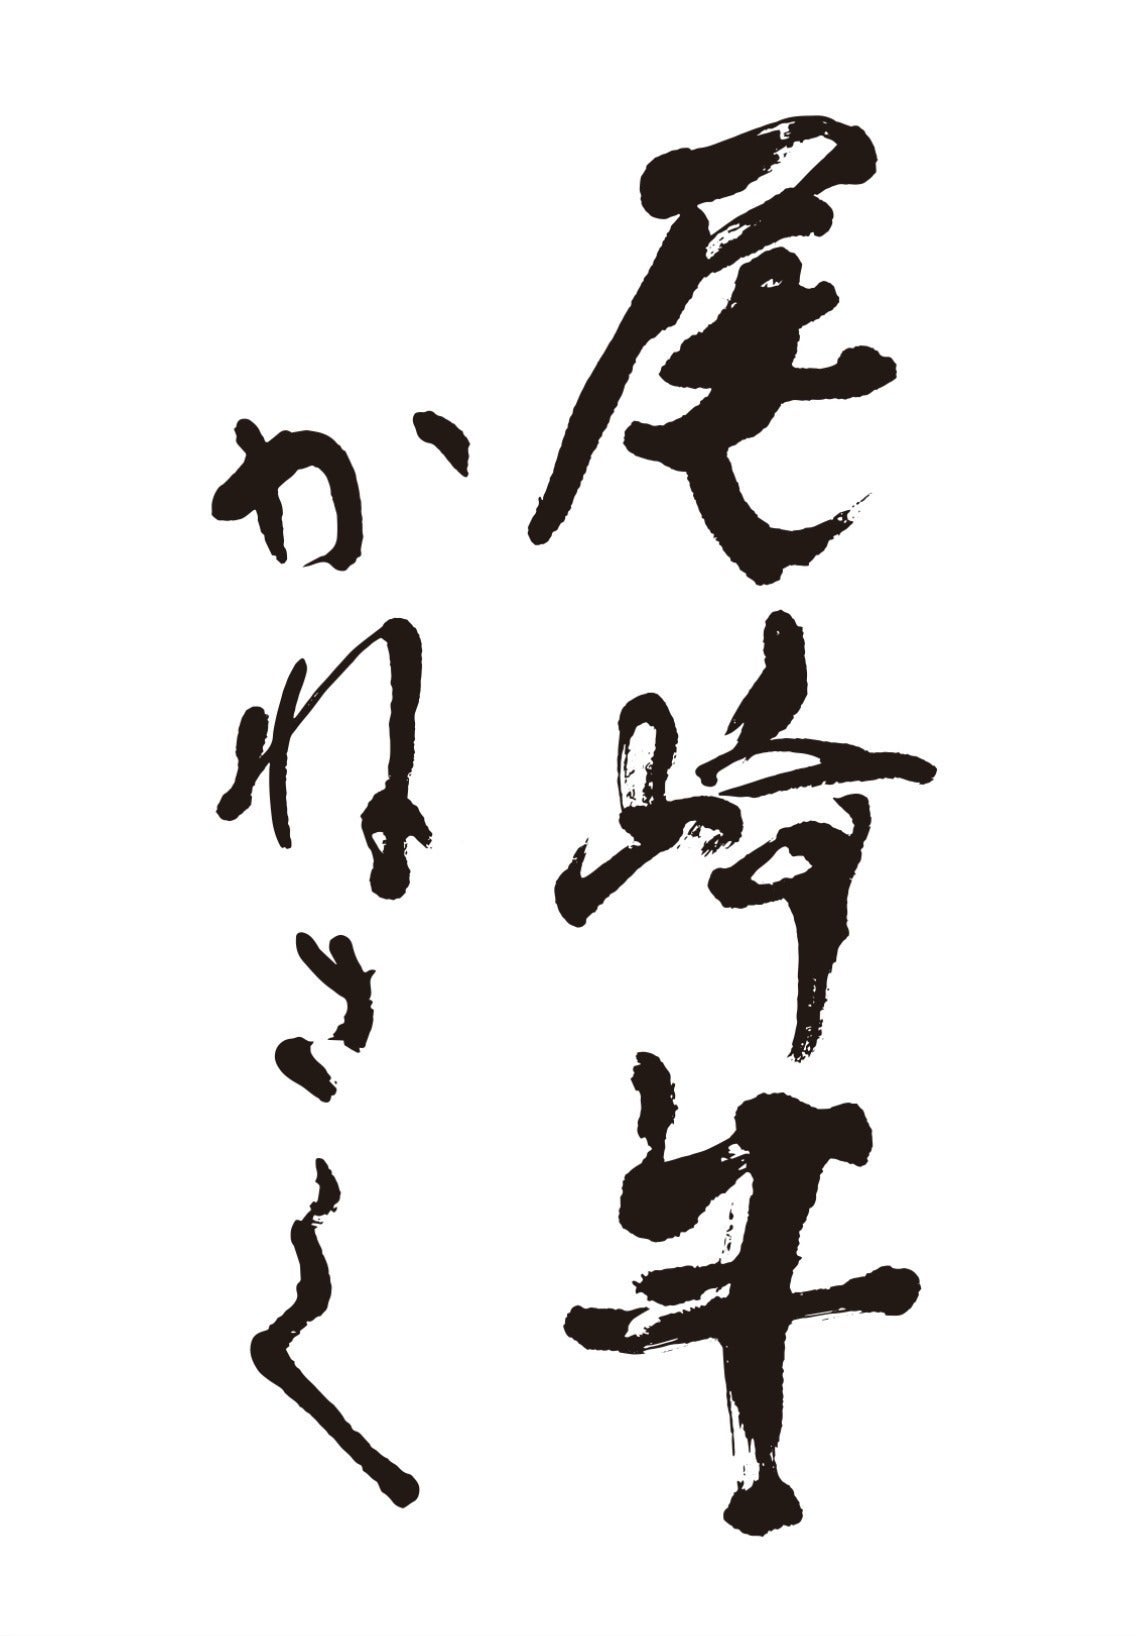 尾崎牛
かねさく